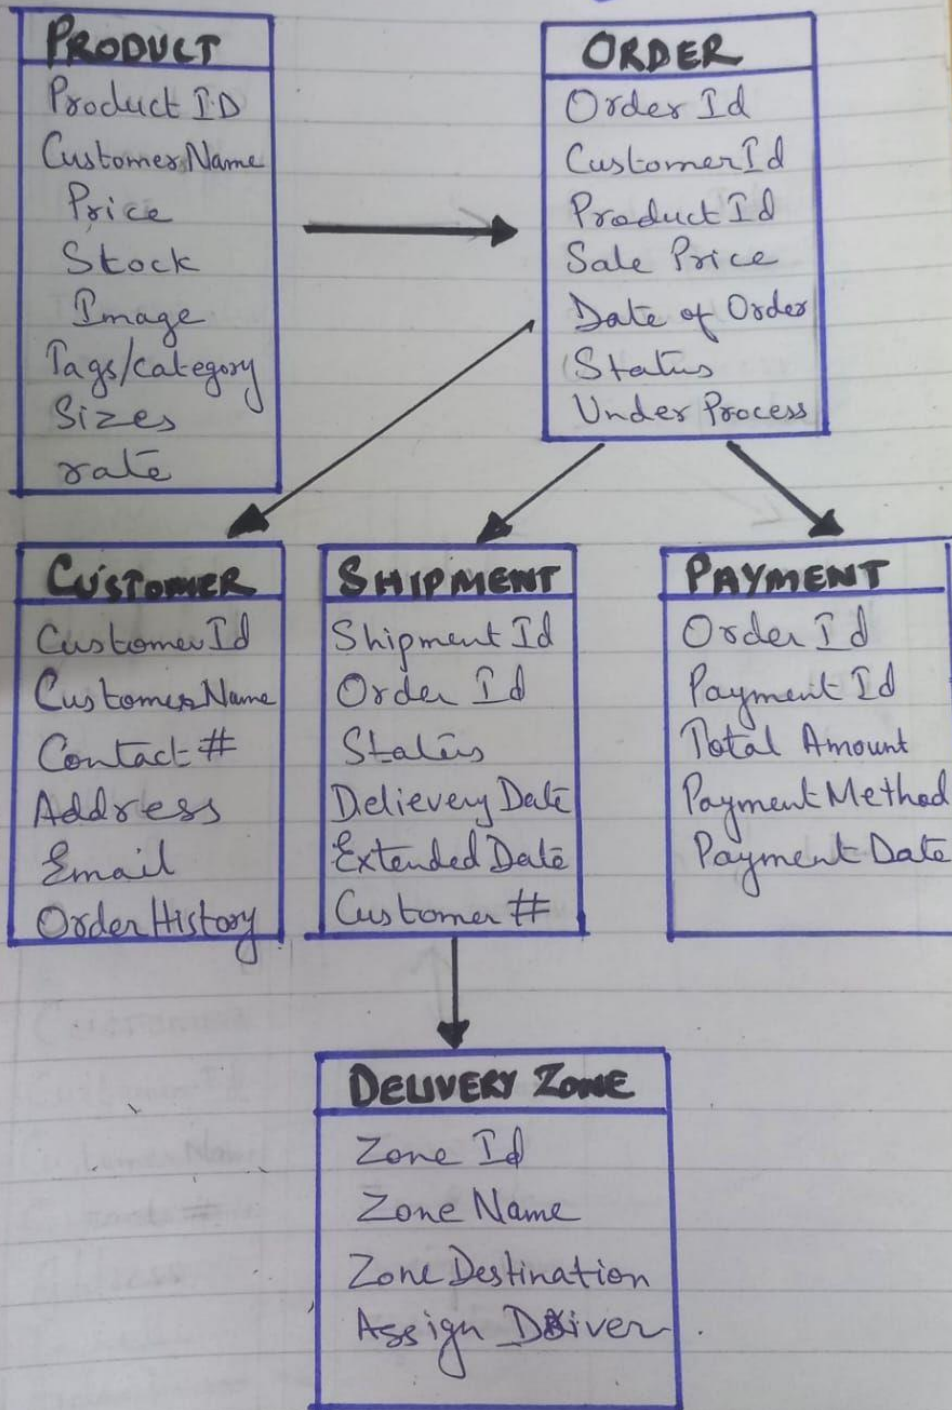 PRODUCT
Product ID
Customer Name
Price
Stock
Image
Tags/category
Sizes
rate
ORDER
Order Id
Customer Id
Product Id
Sale Price
Date of Order
Status
Under Process
CUSTOMER
Customer Id
Customer Name
Contact #
Address
Email
Order History
SHIPMENT
Shipment Id
Order Id
Status
Delievery Date
Extended Date
Customer #
PAYMENT
Order Id
Payment Id
Total Amount
Payment Method
Payment Date
DELIVERY ZONE
Zone Id
Zone Name
Zone Destination
Assign Driver